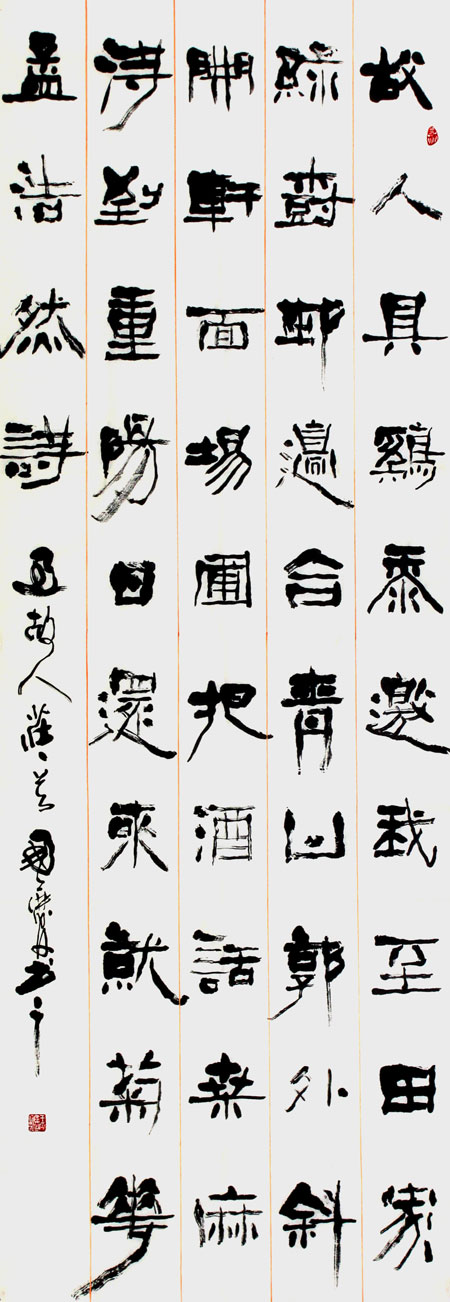 故人具鷄黍邀我至田家
綠樹邨邊合青山郭外斜
開軒面場圃把酒話桑麻
待到重陽日還來就菊華
孟浩然詩 過故人莊